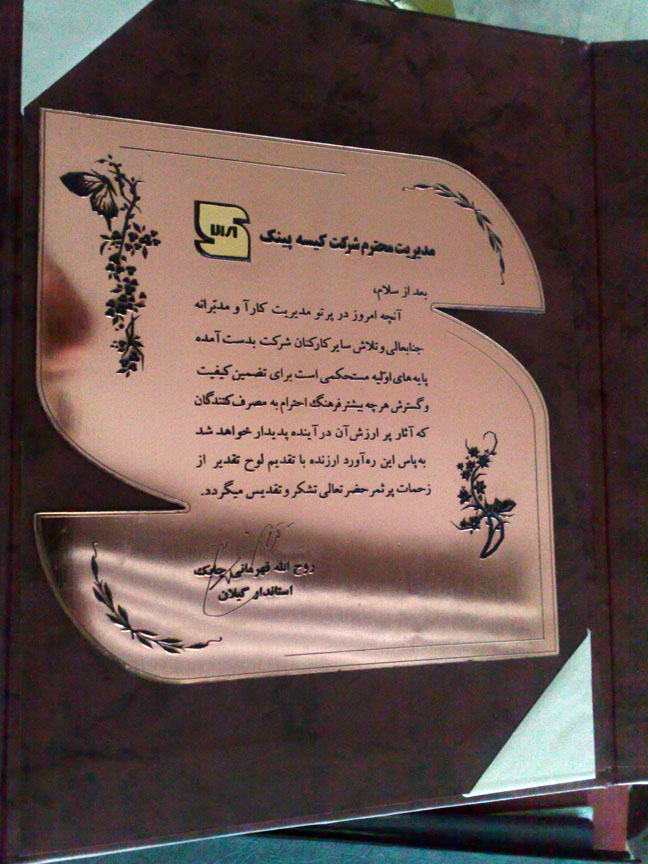 مدیریت محترم شرکت کیسه پینک
بعد از سلام،
آنچه امروز در پرتو مدیریت کارآ و مدبّرانه
جنابعالی و تلاش سایر کارکنان شرکت بدست آمده
پایه های اوّلیه مستحکمی است برای تضمین کیفیت
و گسترش هرچه بیشتر فرهنگ احترام به مصرف کنندگان
که آثار پر ارزش آن در آینده پدیدار خواهد شد
به پاس این ره آورد ارزنده با تقدیم لوح تقدیر از
زحمات پرثمر حضرتعالی تشکر و تقدیس میگردد.
روح الله قهرمانی چابک
استاندار گیلان